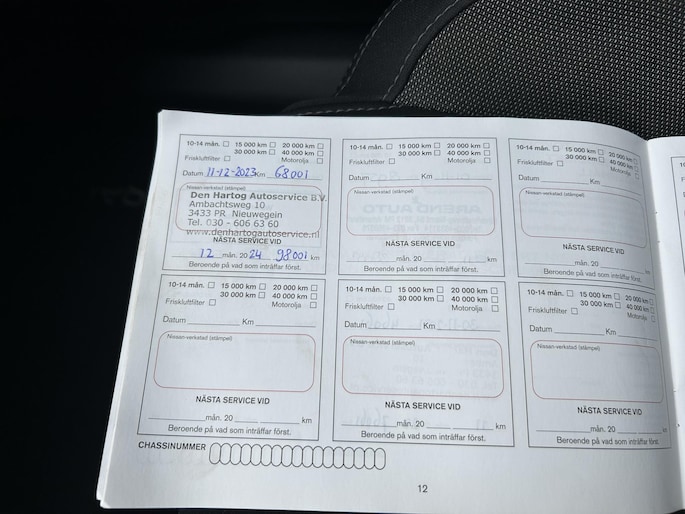 10-14 mån. 15 000 km 20 000 km
30 000 km 40 000 km
Friskluftfilter Motorolja
Datum 11-12-2023 Km 68001
Nissan-verkstad (stämpel)
Den Hartog Autoservice B.V.
Ambachtsweg 10
3433 PR Nieuwegein
Tel. 030 - 606 63 60
www.denhartogautoservice.nl
NÄSTA SERVICE VID
12 mån. 20 24 98001 km
Beroende på vad som inträffar först.
10-14 mån. 15 000 km 20 000 km
30 000 km 40 000 km
Friskluftfilter Motorolja
Datum Km
Nissan-verkstad (stämpel)
NÄSTA SERVICE VID
mån. 20 km
Beroende på vad som inträffar först.
10-14 mån. 15 000 km 20 000 km
30 000 km 40 000 km
Friskluftfilter Motorolja
Datum Km
Nissan-verkstad (stämpel)
NÄSTA SERVICE VID
mån. 20 km
Beroende på vad som inträffar först.
10-14 mån. 15 000 km 20 000 km
30 000 km 40 000 km
Friskluftfilter Motorolja
Datum Km
Nissan-verkstad (stämpel)
NÄSTA SERVICE VID
mån. 20 km
Beroende på vad som inträffar först.
10-14 mån. 15 000 km 20 000 km
30 000 km 40 000 km
Friskluftfilter Motorolja
Datum Km
Nissan-verkstad (stämpel)
NÄSTA SERVICE VID
mån. 20 km
Beroende på vad som inträffar först.
10-14 mån. 15 000 km 20 000 km
30 000 km 40 000 km
Friskluftfilter Motorolja
Datum Km
Nissan-verkstad (stämpel)
NÄSTA SERVICE VID
mån. 20 km
Beroende på vad som inträffar först.
CHASSINUMMER
12